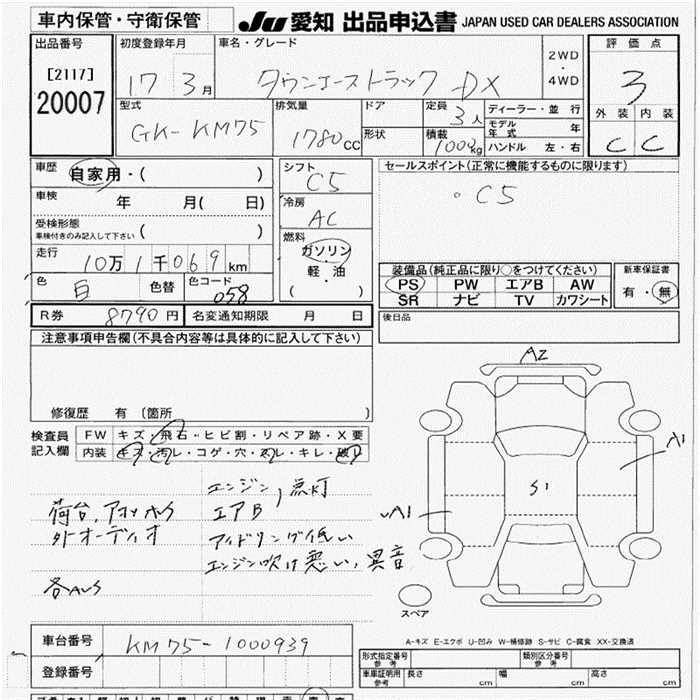 車内保管・守衛保管
JU 愛知 出品申込書 JAPAN USED CAR DEALERS ASSOCIATION
出品番号
[2117]
20007
初度登録年月
17 3月
車名・グレード
タウンエーストラック DX
2WD
・
4WD
評価点
3
外装 内装
C C
型式
GK-KM75
排気量
1780cc
ドア
形状
定員
3人
積載
1000kg
ディーラー・並行
モデル年式 年
ハンドル 左・右
車歴
自家用・( )
車検
年 月( 日)
受検形態
車検付きのみ記入して下さい ( )
走行
10万1千069km
色
白
色替
色コード
058
シフト
C5
冷房
AC
燃料
ガソリン
・
軽・油
( )
セールスポイント(正常に機能するものに限ります)
・C5
装備品(純正品に限り○をつけてください)
PS PW エアB AW
SR ナビ TV カワシート
新車保証書
有・無
R券 8790円 名変通知期限 月 日
後日品
注意事項申告欄(不具合内容等は具体的に記入して下さい)
修復歴 有 (箇所 )
検査員
記入欄
FW キズ・飛石・ヒビ割・リペア跡・X要
内装 キズ・汚レ・コゲ・穴・スレ・キレ・破レ
エンジン,点灯
エアB
アイドリング低い
エンジン吹け悪い,異音
荷台,アオリ
外オーディオ
各
A2
A1
S1
A1
スペア
A-キズ E-エクボ U-凹み W-補修跡 S-サビ C-腐食 XX-交換済
車台番号 KM75-1000939
登録番号
形式指定番号
参考
類別区分番号
参考
車庫証明用
参考
長さ cm 幅 cm 高さ cm